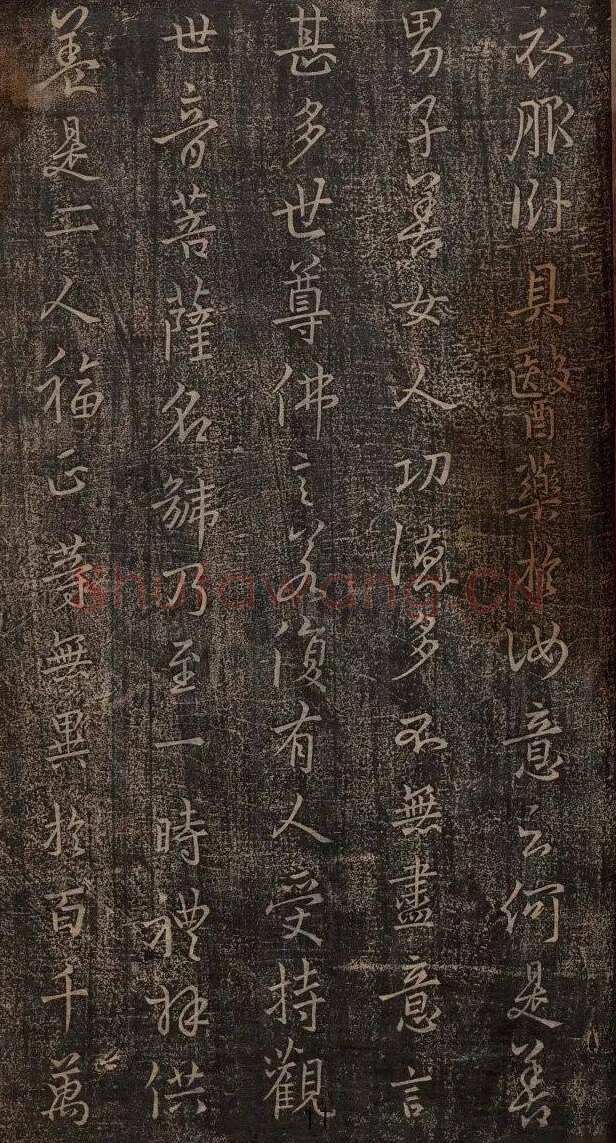 衣服卧具醫藥於汝意云何是善
男子善女人功德多不無盡意言
甚多世尊佛言若復有人受持觀
世音菩薩名號乃至一時禮拜供
養是二人福正等無異於百千萬
Shufawang.CN